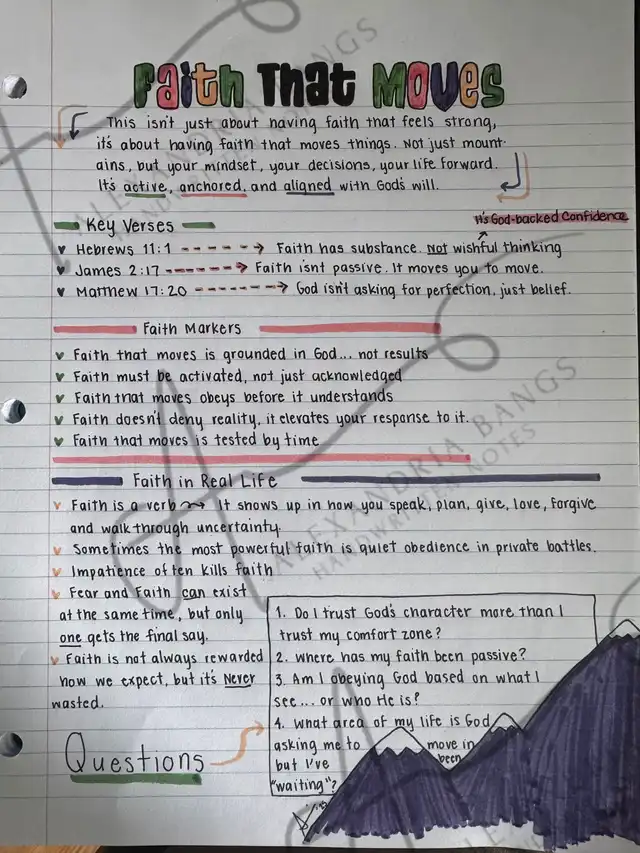 Faith That Moves
This isn't just about having faith that feels strong,
it's about having faith that moves things. Not just mount-
ains, but your mindset, your decisions, your life forward.
It's active, anchored, and aligned with God's will.
It's God-backed Confidence
Key Verses
Hebrews 11:1 Faith has substance. Not wishful thinking
James 2:17 Faith isnt passive. It moves you to move.
Matthew 17:20 God isn't asking for perfection, just belief.
Faith Markers
Faith that moves is grounded in God... not results
Faith must be activated, not just acknowledged
Faith that moves obeys before it understands
Faith doesn't deny reality, it elevates your response to it.
Faith that moves is tested by time
Faith in Real Life
Faith is a verb It shows up in how you speak, plan, give, love, forgive
and walk through uncertainty.
Sometimes the most powerful faith is quiet obedience in private battles.
Impatience often kills faith
Fear and Faith can exist
at the same time, but only
one gets the final say.
Faith is not always rewarded
how we expect, but it's Never
wasted.
Questions
1. Do I trust God's character more than I
trust my comfort zone?
2. Where has my faith been passive?
3. Am I obeying God based on what I
see... or who He is?
4. What area of my life is God
asking me to move in
but I've been
"waiting"?
ALEXANDRIA BANGS
HANDWRITTEN NOTES
ALEXANDRIA BANGS
HANDWRITTEN NOTES